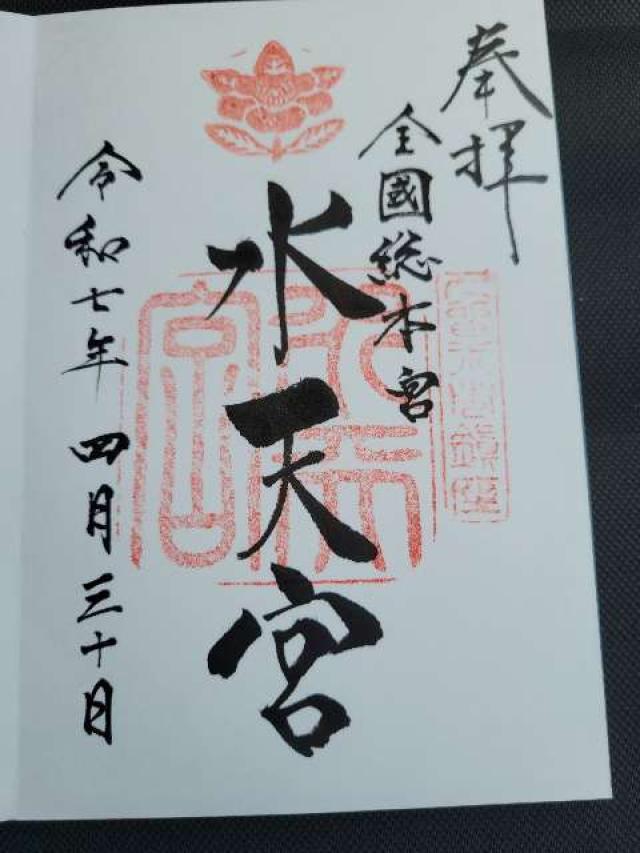 奉拝
全國総本宮
水天宮
令和七年 四月三十日